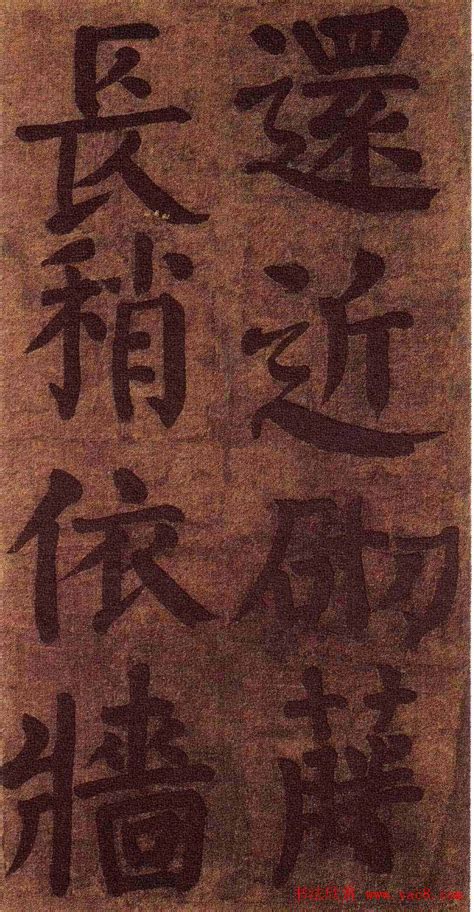 還近砌藤
長稍依牆
书法欣赏 www.yac8.com